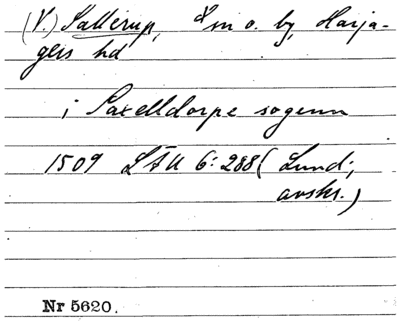 (V.) Sallerup, sn o. by, Harja-
gers hd
i Saxelldorpe sogenn
1509 LÄU 6:288 (Lund;
avskr.)
Nr 5620.